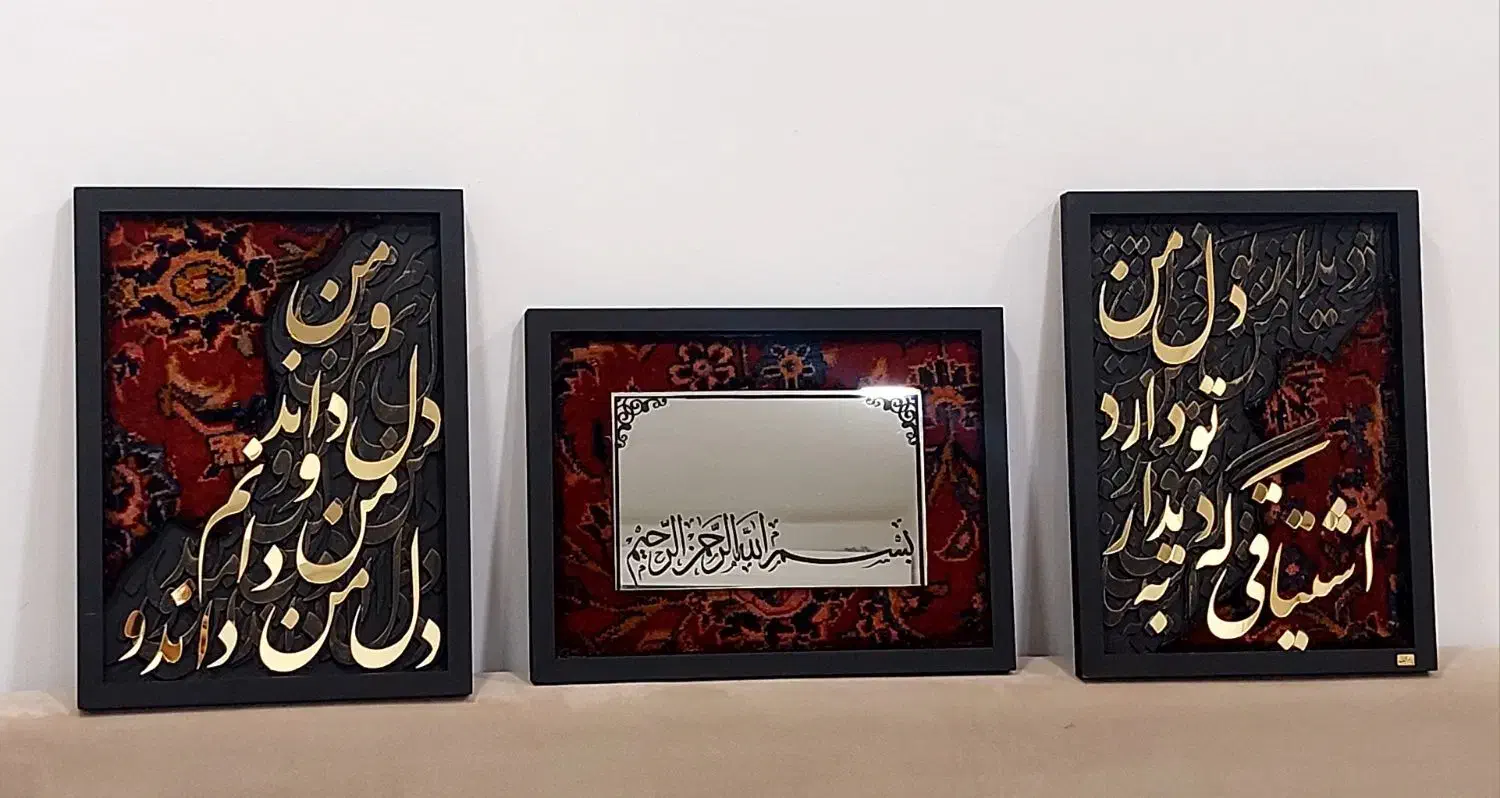 اشتیاقی که
به دیدار
تو دارد
دل من
بسم الله الرحمن الرحیم
دل من داند و
من دانم
و دل داند
و من